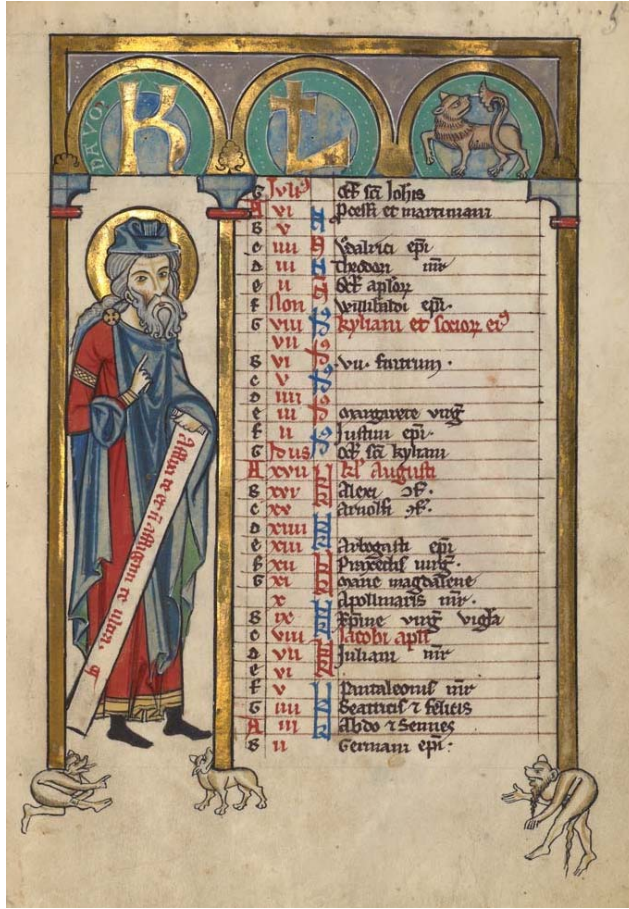 NAVO
KL
5
G Iuli⁹ Oct̄ sc̄i Joh̄is
A VI P̱cessi et martiniani
B V
c IIII Vdalrici ep̄i
D III Theodori m̄r
e II Oct̄ apl̄oꝝ
f Non Willibaldi ep̄i.
G VIII kyliani et socioꝝ ei⁹
VII
B VI VII. fratrum.
c V
D IIII
e III Margarete virḡ
f II Justini ep̄i.
G Idus Oct̄ sc̄i kyliani
A XVII kl̄ Augusti
B XVI Alexi ↄf.
c XV Arnolfi ↄf.
D XIIII
e XIII Arbogasti ep̄i
f XII Praxedis virḡ
G XI Marie magdalene
X Apollinaris m̄r.
B IX Xp̄ine virḡ vigl̄a
c VIII Jacobi apl̄i
D VII Juliani m̄r
e VI
f V Pantaleonis m̄r
G IIII Beatricis ⁊ felicis
A III Abdo ⁊ Sennes
B II Germani ep̄i.
Afflixi te et nō affligam te ultra,